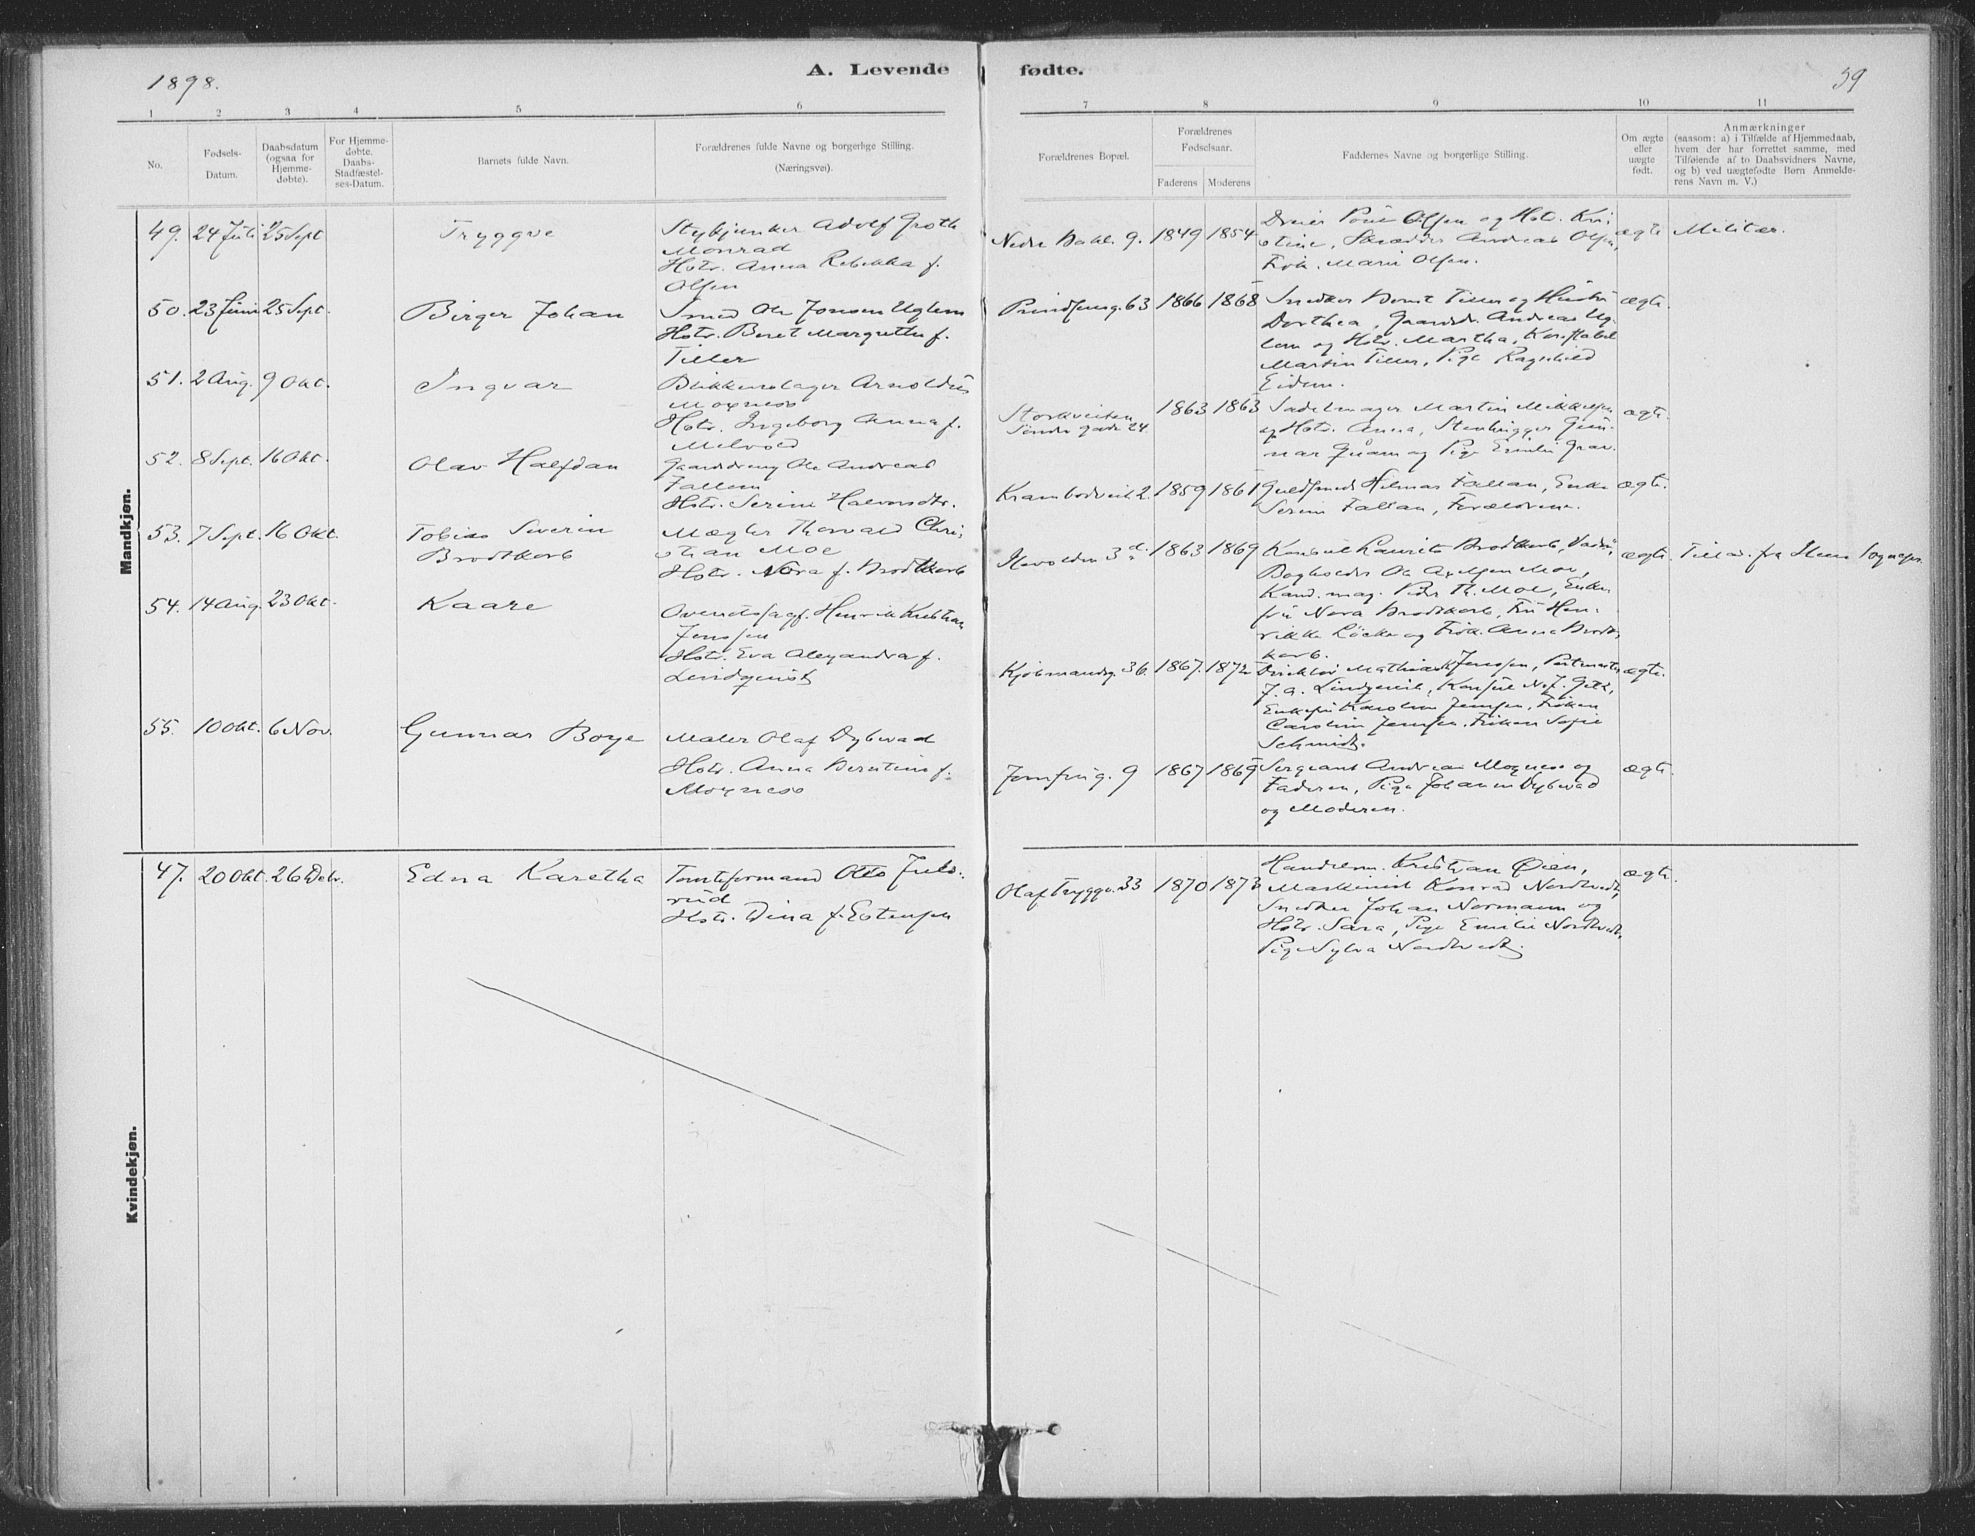 1898.
A. Levende fødte.
39
1 2 3 4 5 6 7 8 9 10 11
No.
Fødsels-
Datum.
Daabsdatum
(ogsaa for
Hjemme-
døbte).
For Hjemme-
døbte.
Daabs-
Stadfæstel-
ses-Datum.
Barnets fulde Navn.
Forældrenes fulde Navne og borgerlige Stilling.
(Næringsvei).
Forældrenes Bopæl.
Forældrenes
Fødselsaar.
Faderens Moderens
Faddernes Navne og borgerlige Stilling.
Om ægte
eller
uægte
født.
Anmærkninger
(saasom: a) i Tilfælde af Hjemmedaab,
hvem der har forrettet samme, med
Tilføiende af to Daabsvidners Navne,
og b) ved uægtefødte Børn Anmelde-
rens Navn m. V.)
Mandkjøn.
49. 24 Juli 25 Sept Tryggve
Stykjunker Adolf Groth
Monrad
Hstr. Anna Rebekka f.
Olsen
Nedre Bakl. 9. 1849 1854
Olsen og Hst. Kri-
stine, Skrædder Andreas Olsen,
Frk. Marie Olsen.
ægte Militær.
50. 23 Juni 25 Sept. Birger Johan
Smed Ole Jonsen Uglem
Hstr. Beret Margrethe f.
Tiller
Prindsensg. 63 1866 1868
Snedker Bernt Tiller og Hustru
Dorthea, Gaardbr. Andreas Ug-
lem og Hstr. Martha,
Martin Tiller, Pige Ragnhild
Eidem.
ægte.
51. 2 Aug. 9 Okt. Ingvar
Blikkenslager Arnoldus
Moxness
Hstr. Ingeborg Anna f.
Melvold
Storkveiten
Søndre gade 24. 1863 1863
Sadelmager Martin Mikkelsen
og Hstr. Anna, Stenhugger Gun-
nar Qvam og Pige Emilie Grav.
ægte.
52. 8 Sept. 16 Okt. Olav Halfdan
Gaarddreng Ole Andreas
Fallem
Hstr. Serine Halvorsdtr.
Krambodveit 2. 1859 1861
Guldsmed Hilmar Fallan, Enke
Seren Fallan, Forældrene.
ægte.
53. 7 Sept. 16 Okt. Tobias Severin
Brodtkorb
Mægler Thorvald Chri-
stian Moe
Hstr. Nora f. Brodtkorb
Ilevolden 3 d. 1863 1869
Konsul Laurits Brodtkorb, Vadsø,
Bogholder Ole Axelsen Moe,
Kand. mag. Peder Th. Moe, Enke-
fru Nora Brodtkorb, Fru Hen-
rikke Løcke og Frk. Anna Brodt-
korb.
ægte. fra Ilens Sognepr.
54. 14 Aug. 23 Okt. Kaare
Henrik Kristian
Jenssen
Hstr. Eva Alexandra f.
Lindquist
Kjøbmandsg. 36. 1867. 1872
Direktør Mathias Jenssen, Postmester
J. A. Lindquist, Konsul N. J.
Enkefru Karoline Jenssen, Frøken
Caroline Jenssen, Frøken Sofie
Schmidt.
ægte.
55. 10 Okt. 6 Nov. Gunnar Boye
Maler Olaf Dybwad
Hstr. Anna Berntine f.
Moxness
Jomfrug. 9 1867 1869
Sergeant Andreas Moxness og
Faderen, Pige Johanne Dybwad
og Moderen.
ægte.
Kvindekjøn.
47. 20 Okt. 26 Debr. Edna Karetha
Tomteformand Otto Juls-
rud
Hstr. Dina f. Estensen
Olaf Tryggv. 33 1870 1873
Handelsm. Kristian Øien,
Maskinist Konrad Nordtvedt,
Snedker Johan Normann og
Hstr. Sara, Pige Emilie Nordtvedt,
Pige Sylva Nordtvedt.
ægte.